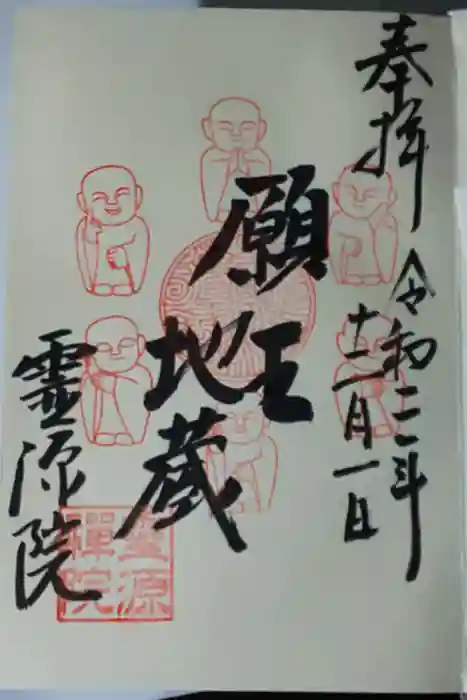 奉拝
令和三年
十二月一日
願王
地蔵
霊源院
靈源
禪院